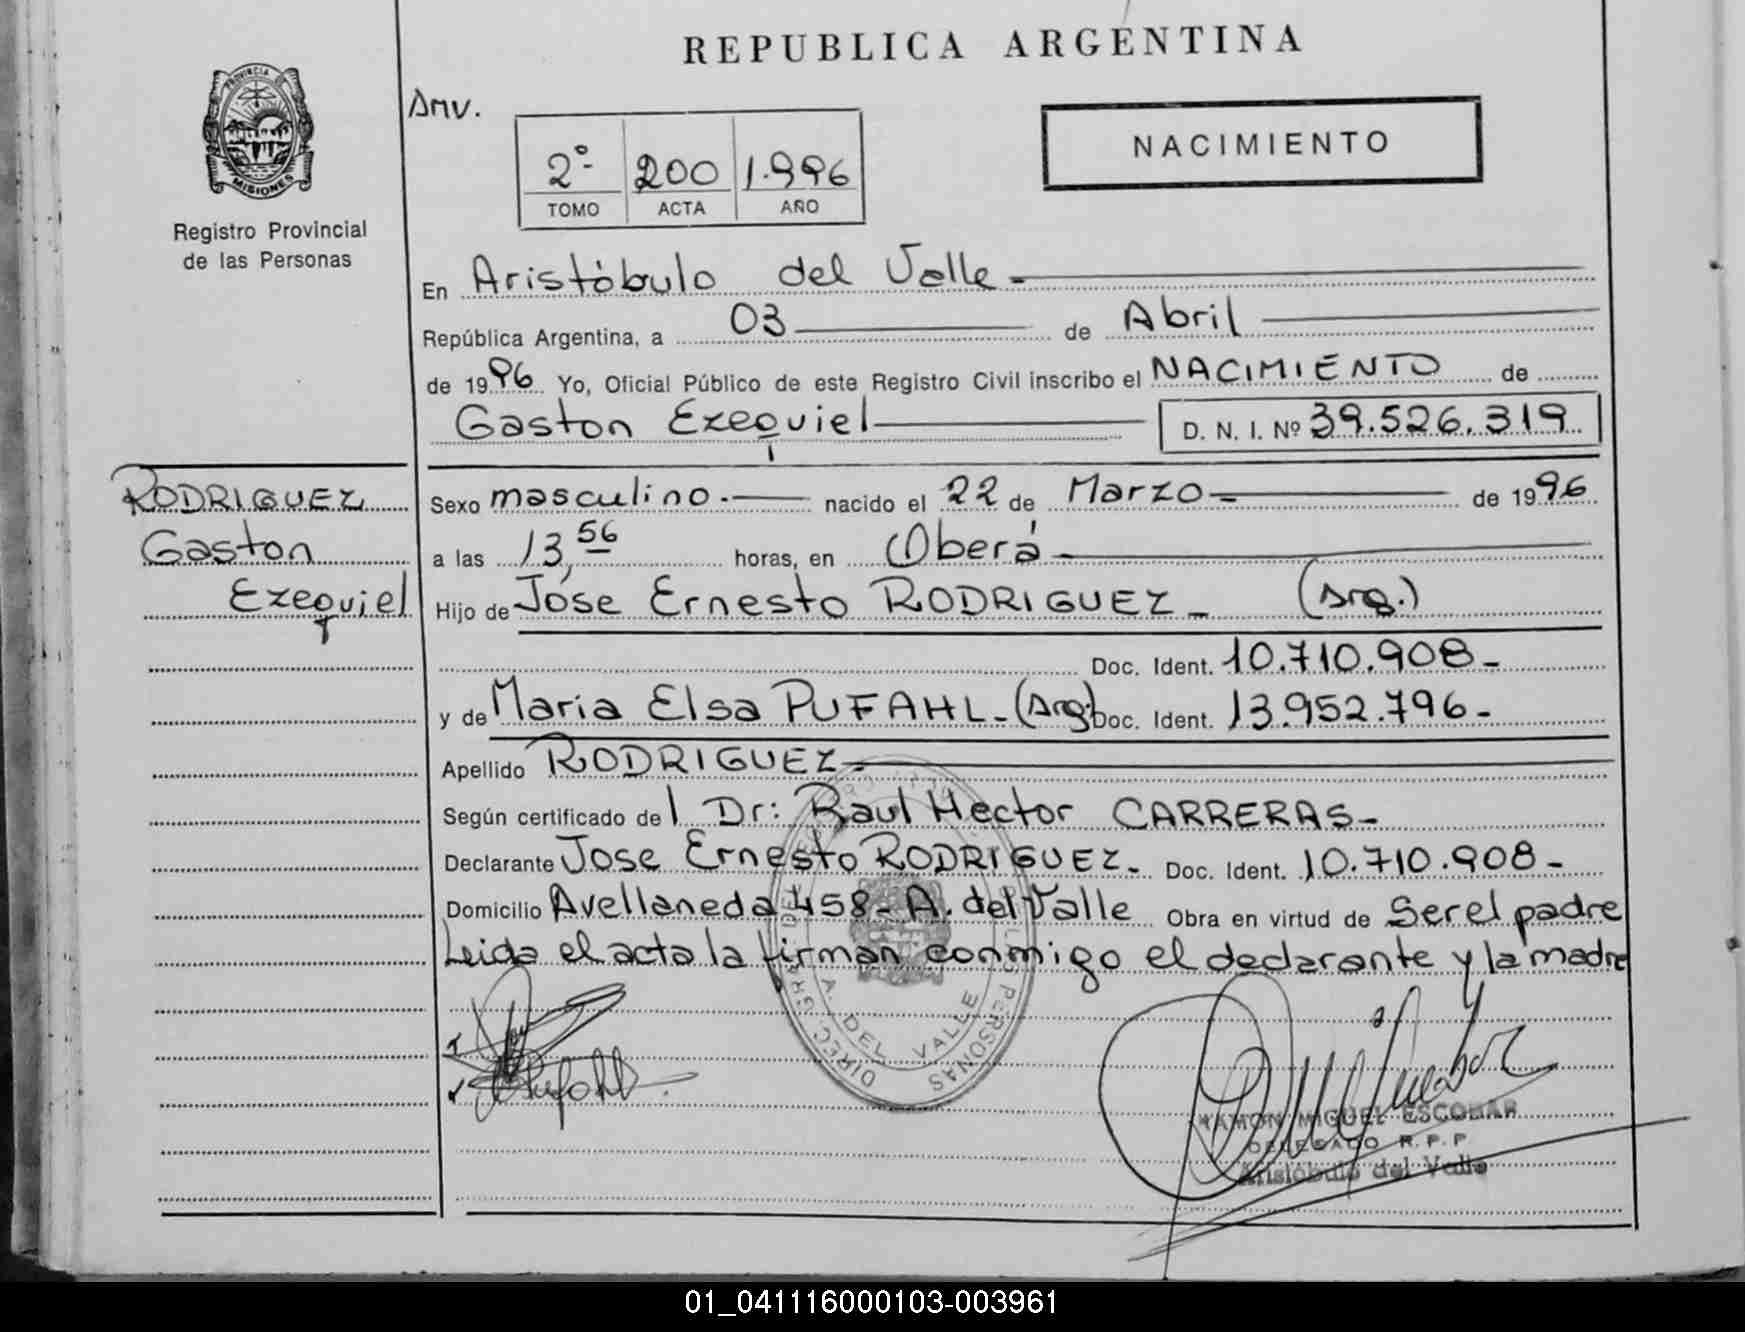 REPUBLICA ARGENTINA
PROVINCIA
MISIONES
Registro Provincial
de las Personas
Anv.
2° 200 1.996
TOMO ACTA AÑO
NACIMIENTO
En Aristóbulo del Valle
República Argentina, a 03 de Abril
de 1996 Yo, Oficial Público de este Registro Civil inscribo el NACIMIENTO de
Gaston Ezequiel D. N. I. Nº 39.526.319
RODRIGUEZ
Gaston
Ezequiel
Sexo masculino.- nacido el 22 de Marzo de 1996
a las 13,56 horas, en Oberá
Hijo de Jose Ernesto RODRIGUEZ - (Arg.)
Doc. Ident. 10.710.908-
y de Maria Elsa PUFAHL - (Arg.) Doc. Ident. 13.952.796-
Apellido RODRIGUEZ
Según certificado del Dr: Raul Hector CARRERAS-
Declarante Jose Ernesto RODRIGUEZ- Doc. Ident. 10.710.908-
Domicilio Avellaneda 458- A. del Valle Obra en virtud de Ser el padre
Leida el acta la firman conmigo el declarante y la madre
A. DEL VALLE
PERSONAS
Pufahl
RAMON MIGUEL ESCOBAR
DELEGADO R.P.P
Aristóbulo del Valle
01_041116000103-003961